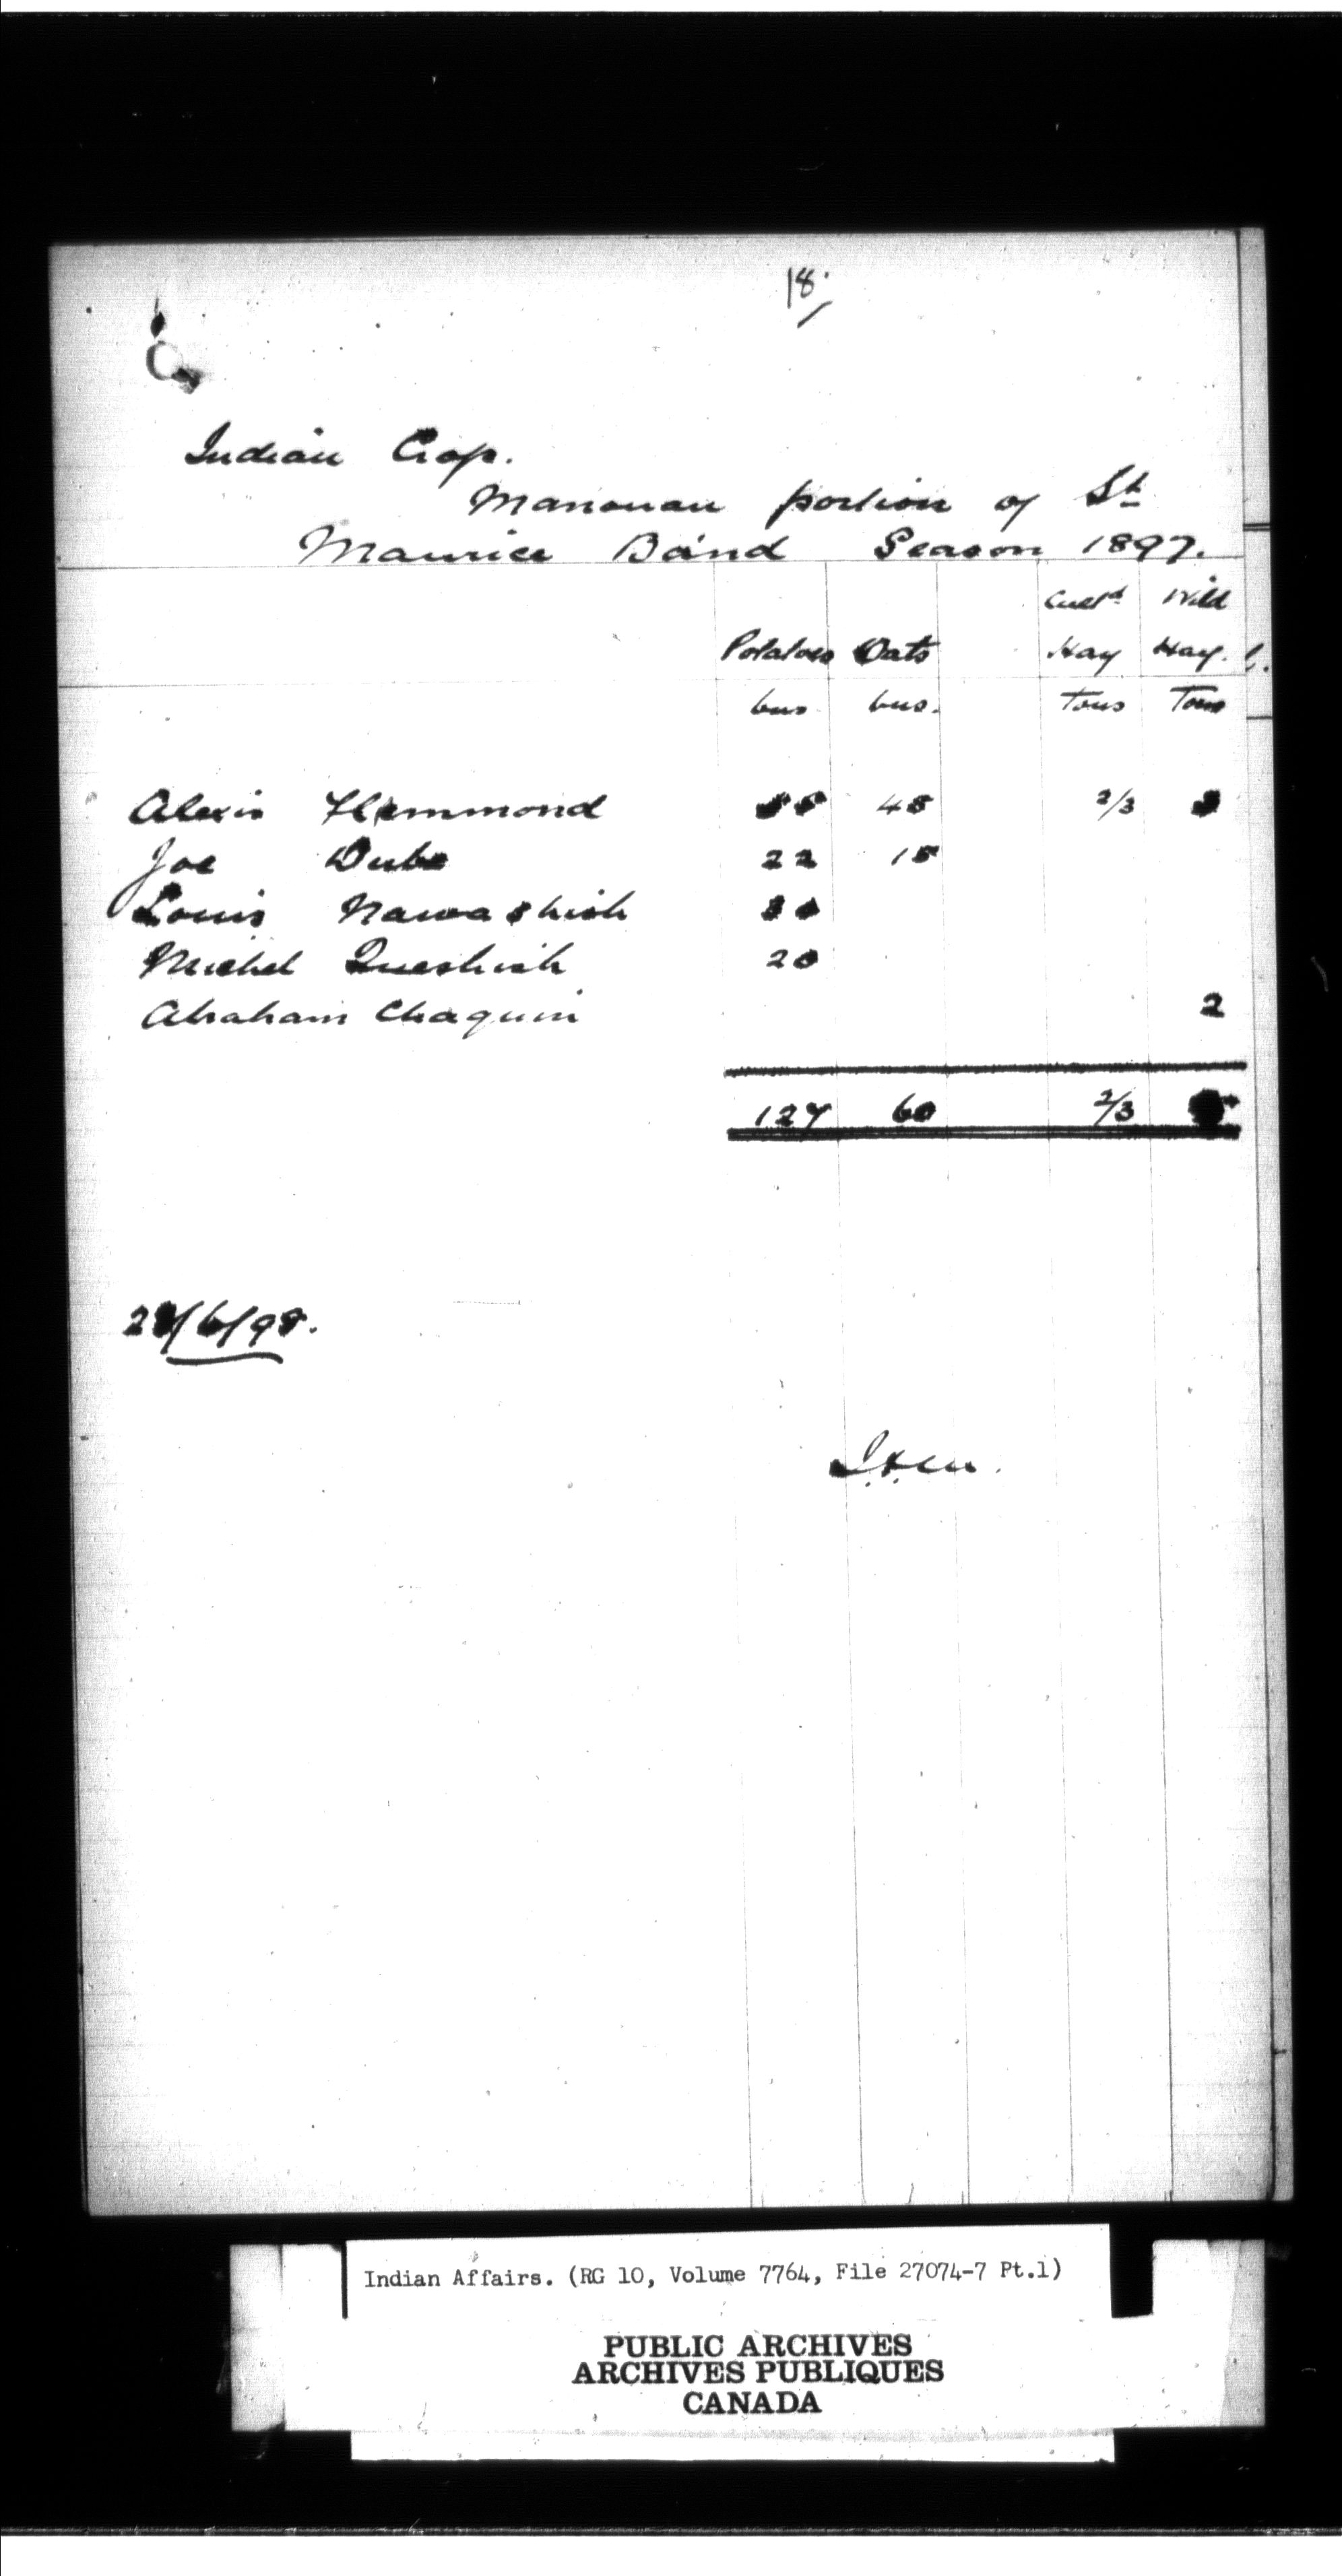 18.
Indian Crop.
Manouan portion of St
Maurice Band Season 1897.
Cultd Wild
Potatoes Oats Hay Hay.
bus bus. Tons Tons
Alexis Hammond 55 45 2/3 3
Joe Dube 22 15
Louis Nawashish 30
Michel Queshish 20
Abraham Chaquin 2
127 60 2/3 5
/6/98.
Indian Affairs. (RG 10, Volume 7764, File 27074-7 Pt.1)
PUBLIC ARCHIVES
ARCHIVES PUBLIQUES
CANADA